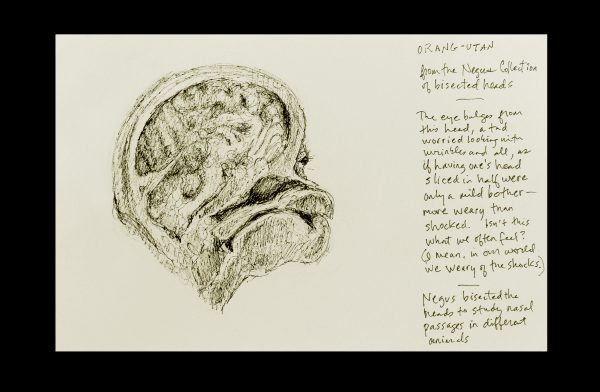 ORANG-UTAN
from the Negus Collection
of bisected heads
The eye bulges from
this head, a tad
worried looking with
wrinkles and all, as
if having one's head
sliced in half were
only a mild bother —
more weary than
shocked. Isn't this
what we often feel?
(I mean, in our world
we weary of the shocks.)
Negus bisected the
heads to study nasal
passages in different
animals